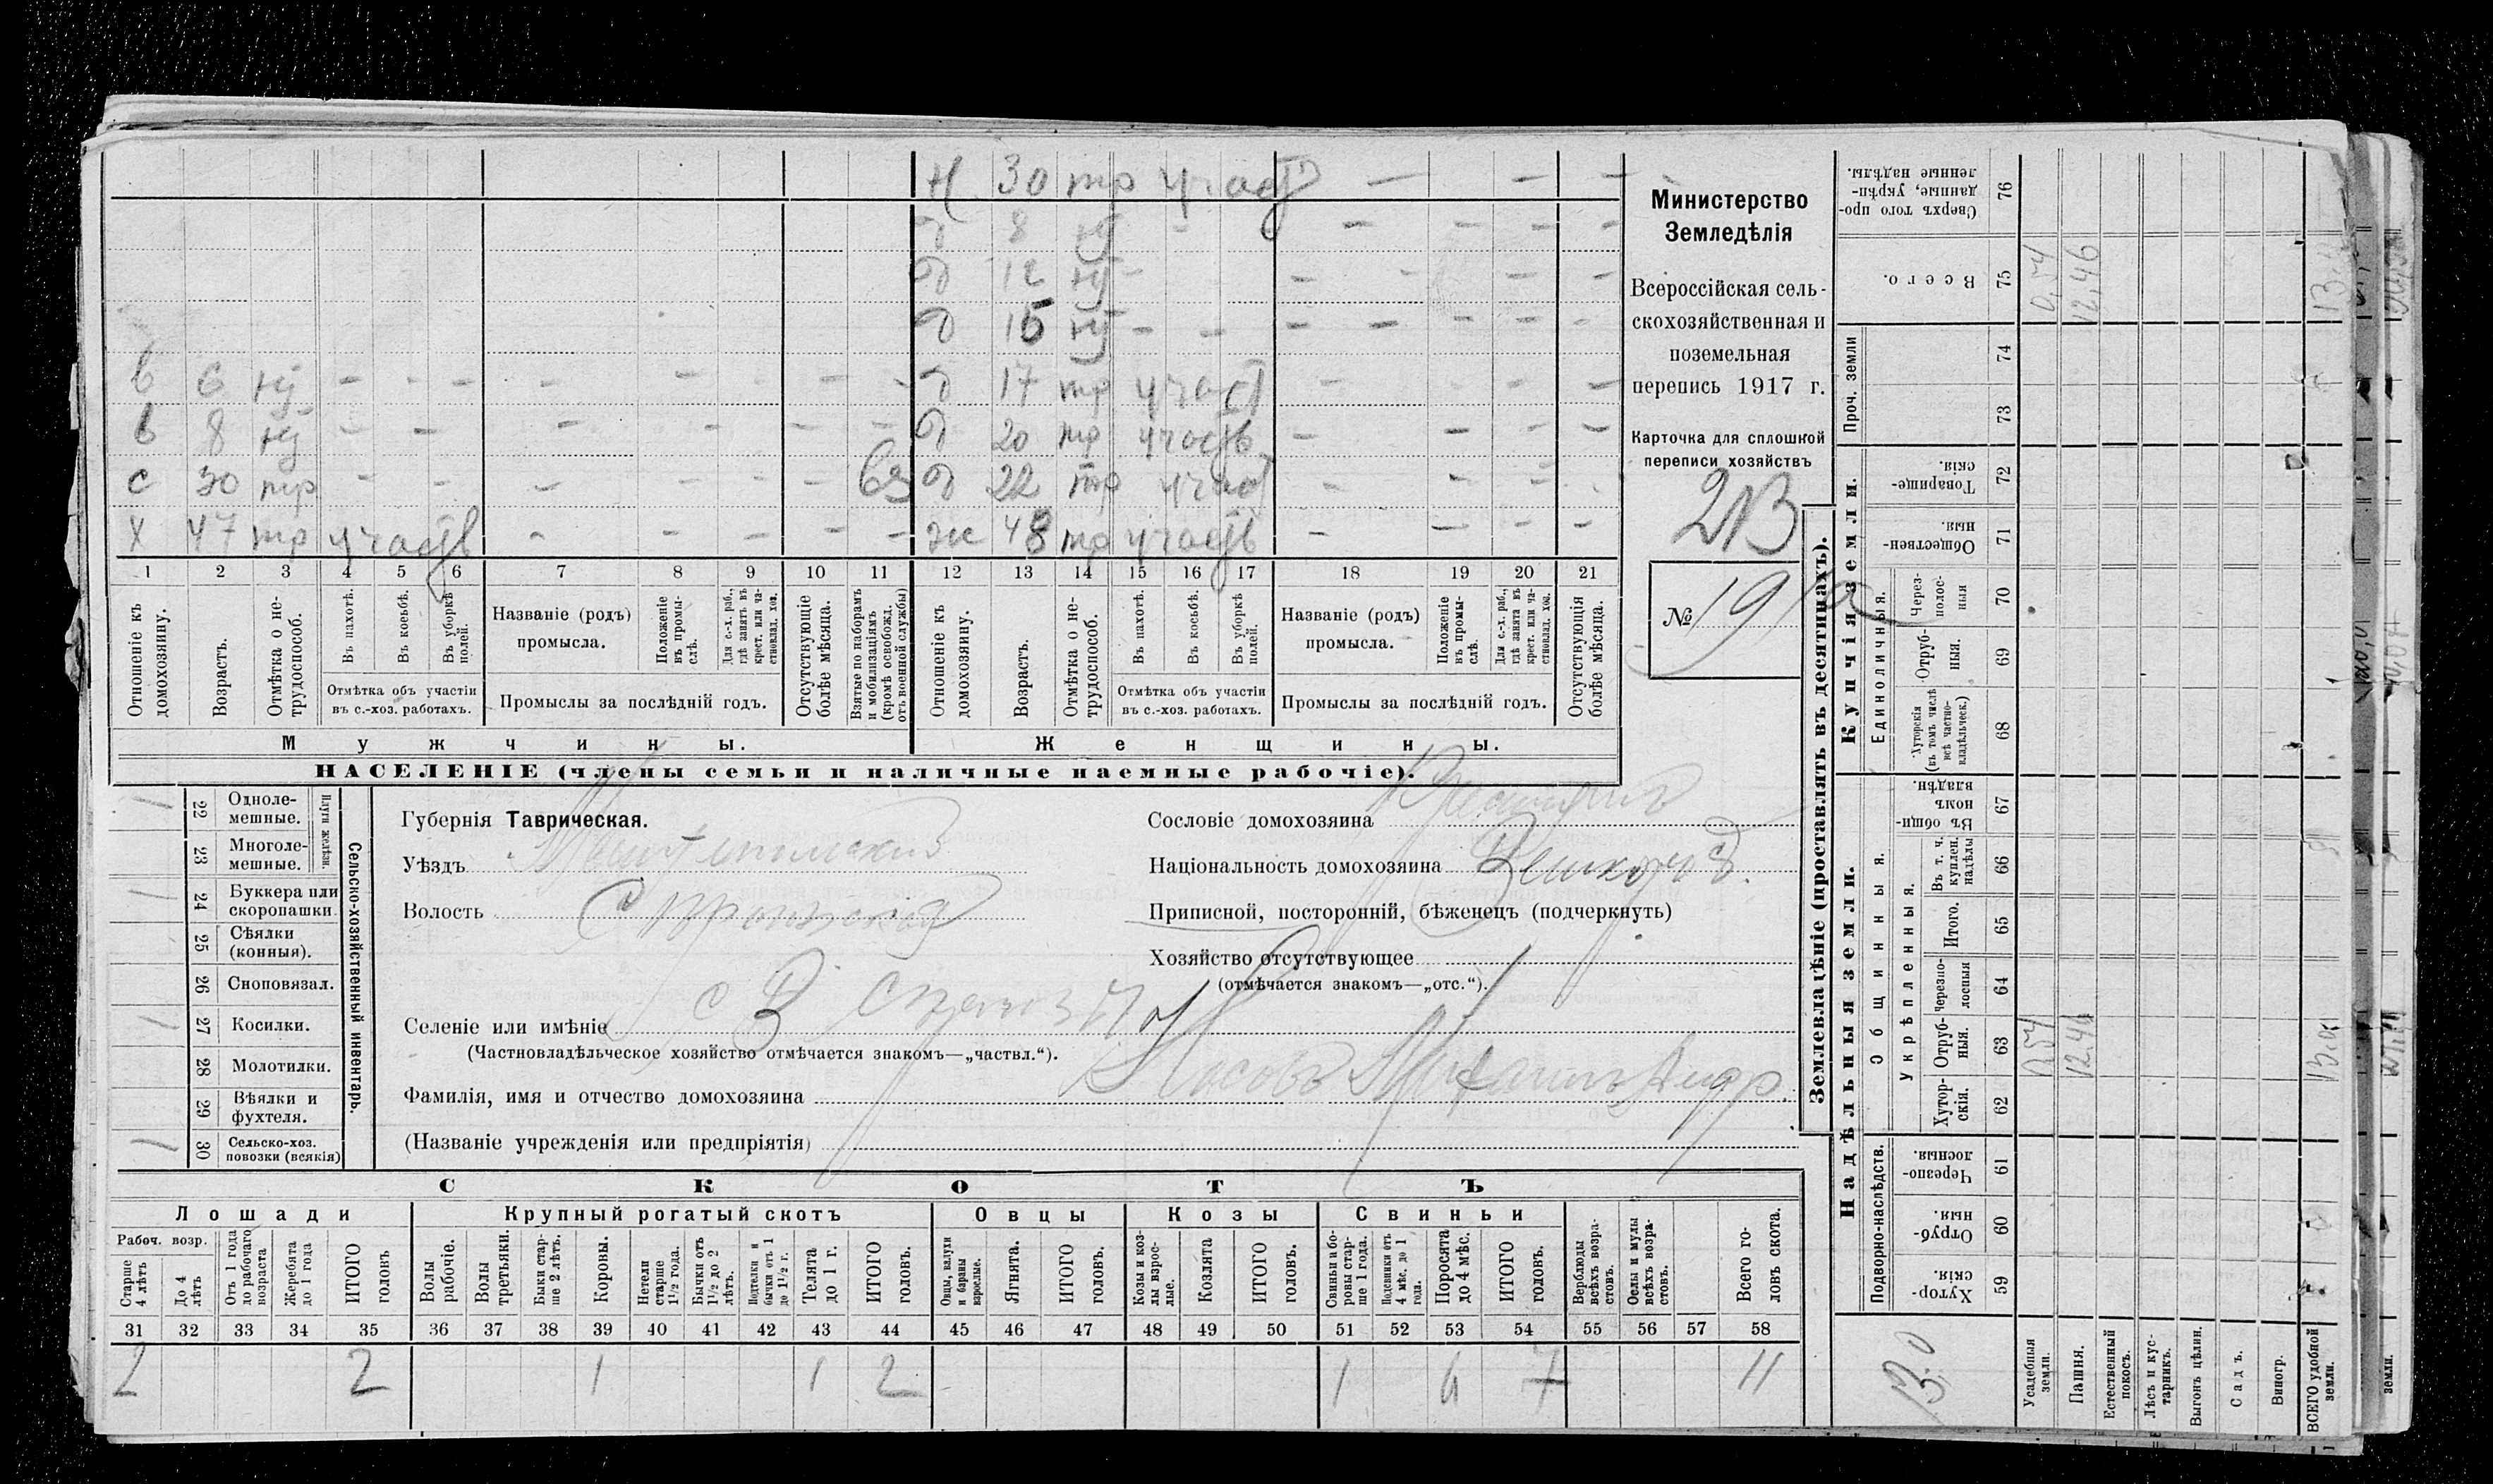 н 30 тр участ — — —
д 8 н/ — — — — —
д 12 н/ — — — — —
д 15 н/ — — — — — — —
в 6 н/ — — — — — — — —
д 17 тр участ — — — —
в 8 н/ — — — — — —
д 20 тр участв — — — —
с 30 тр — — — — — — вз
д 22 тр участ — — —
х 47 тр участв — — — — —
ж 48 тр участв — — — —
1 2 3 4 5 6 7 8 9 10 11 12 13 14 15 16 17 18 19 20 21
Отношеніе къ домохозяину.
Возрастъ.
Отмѣтка о не-трудоспособ.
Въ пахотѣ.
Въ косьбѣ.
Въ уборкѣ полей.
Отмѣтка объ участіи
въ с.-хоз. работахъ.
Названіе (родъ)
промысла.
Положеніе въ промы-слѣ.
Для с.-х. раб., гдѣ занятъ въ крест. или ча-стновлад. хоз.
Промыслы за послѣдній годъ.
Отсутствующіе болѣе мѣсяца.
Взятые по наборамъ и мобилизаціямъ (кромѣ освобожд. отъ военной службы)
Отношеніе къ домохозяину.
Возрастъ.
Отмѣтка о не-трудоспособ.
Въ пахотѣ.
Въ косьбѣ.
Въ уборкѣ полей.
Отмѣтка объ участіи
въ с.-хоз. работахъ.
Названіе (родъ)
промысла.
Положеніе въ промы-слѣ.
Для с.-х. раб., гдѣ занята въ крест. или ча-стновлад. хоз.
Промыслы за послѣдній годъ.
Отсутствующія болѣе мѣсяца.
Мужчины.
Женщины.
НАСЕЛЕНІЕ (члены семьи и наличные наемные рабочіе).
Министерство
Земледѣлія
Всероссійская сель-
скохозяйственная и
поземельная
перепись 1917 г.
Карточка для сплошной
переписи хозяйствъ
213
№ 19
Сельско-хозяйственный инвентарь.
Плуги желѣзн.
22 Одноле-мешные. 1
23 Многоле-мешные.
24 Буккера или скоропашки 1
25 Сѣялки (конныя).
26 Сноповязал.
27 Косилки. 1
28 Молотилки.
29 Вѣялки и фухтеля.
30 Сельско-хоз. повозки (всякія) 1
Губернія Таврическая.
Уѣздъ Мелитопольскій
Волость
Селеніе или имѣніе
(Частновладѣльческое хозяйство отмѣчается знакомъ—„частвл.“).
Фамилія, имя и отчество домохозяина
(Названіе учрежденія или предпріятія)
Сословіе домохозяина Крестьянинъ
Національность домохозяина
Приписной, посторонній, бѣженецъ (подчеркнуть)
Хозяйство отсутствующее
(отмѣчается знакомъ—„отс.“).
СКОТЪ
Лошади
Рабоч. возр.
Старше 4 лѣтъ
До 4 лѣтъ
Отъ 1 года до рабочаго возраста
Жеребята до 1 года
ИТОГО головъ
Крупный рогатый скотъ
Волы рабочіе.
Волы третьяки.
Быки стар-ше 2 лѣтъ.
Коровы.
Нетели старше 1½ года.
Бычки отъ 1½ до 2 лѣтъ.
Подтелки и бычки отъ 1 до 1½ г.
Телята до 1 г.
ИТОГО головъ.
Овцы
Овцы, валухи и бараны взрослые.
Ягнята.
ИТОГО головъ.
Козы
Козы и коз-лы взрос-лые.
Козлята
ИТОГО головъ.
Свиньи
Свиньи и бо-ровы стар-ше 1 года.
Подсвинки отъ 4 мѣс. до 1 года.
Поросята до 4 мѣс.
ИТОГО головъ.
Верблюды всѣхъ возра-стовъ.
Ослы и мулы всѣхъ возра-стовъ.
Всего го-ловъ скота.
31 32 33 34 35 36 37 38 39 40 41 42 43 44 45 46 47 48 49 50 51 52 53 54 55 56 57 58
2 2 1 1 2 1 6 7 11
Землевладѣніе (проставлять въ десятинахъ).
Надѣльныя земли.
Подворно-наслѣдств.
Хутор-скія. 59
Отруб-ныя. 60
Черезпо-лосныя. 61
Общинныя.
Укрѣпленныя.
Хутор-скія. 62
Отруб-ныя. 63
Черезпо-лосныя 64
Итого. 65
Въ т. ч. куплен. надѣлы 66
Въ общин-номъ владѣн. 67
Купчія земли.
Единоличныя.
Хуторскія (въ томъ числѣ всѣ частно-владѣльческ.) 68
Отруб-ныя. 69
Через-полос-ныя 70
Обществен-ныя. 71
Товарище-скія. 72
Проч. земли
73
74
Всего. 75
Сверхъ того про-данные, укрѣп-ленные надѣлы. 76
13.0
Усадебныя земли. 0,54 0,54
Пашня. 12,46 12,46
Естественный покосъ.
Лѣсъ и кус-тарникъ.
Выгонъ цѣлин.
Садъ.
Виногр.
ВСЕГО удобной земли.
земли.